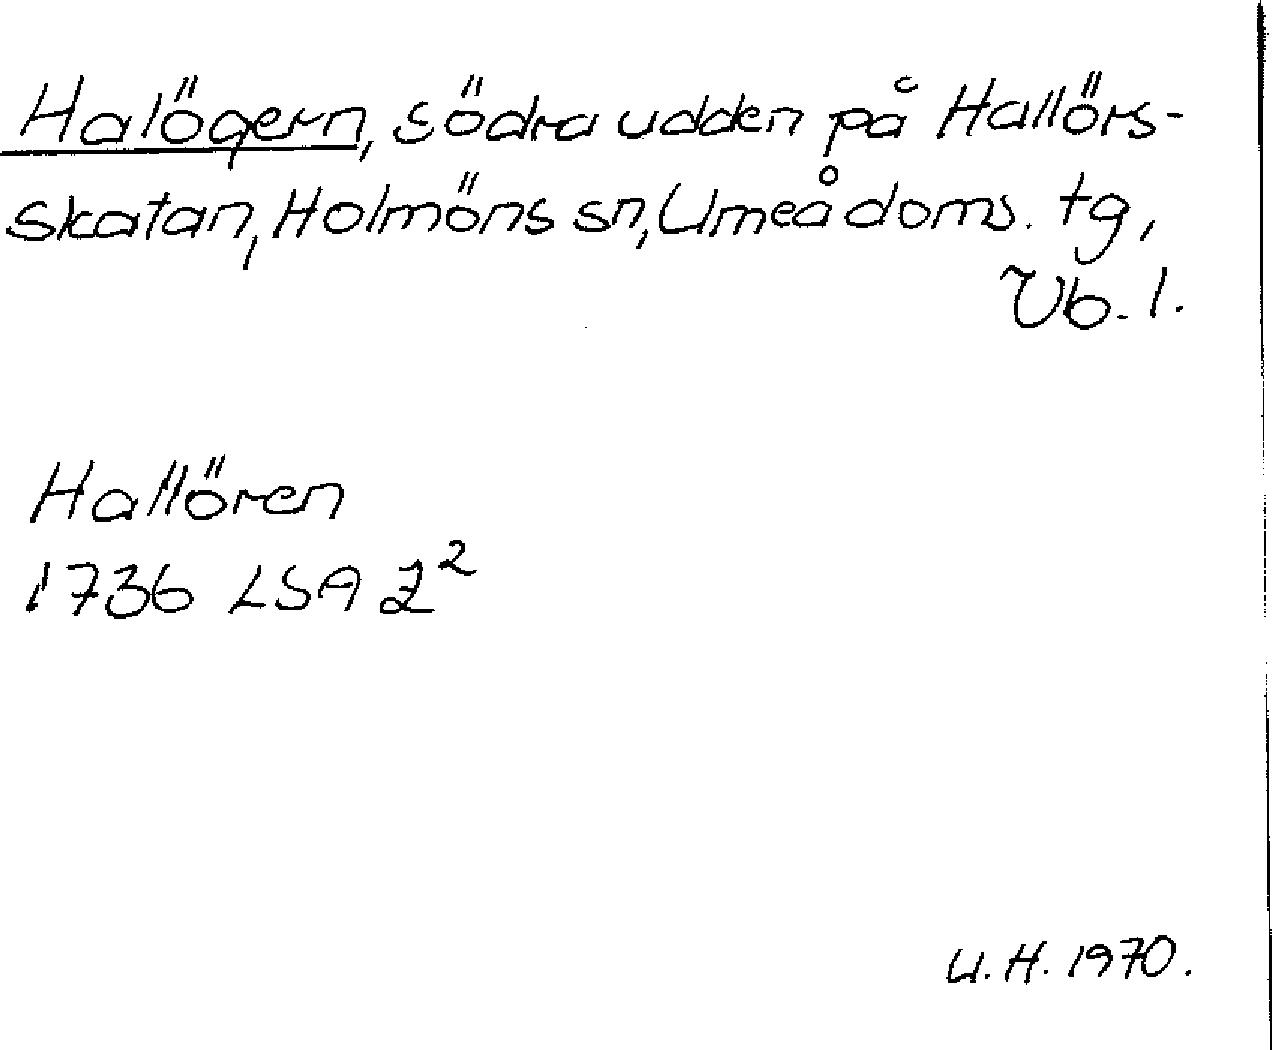 Halögern, södra udden på Hallörs-
skatan, Holmöns sn, Umeå doms. tg,
Vb. l.
Hallören
1736 LSA Z²
U. H. 1970.